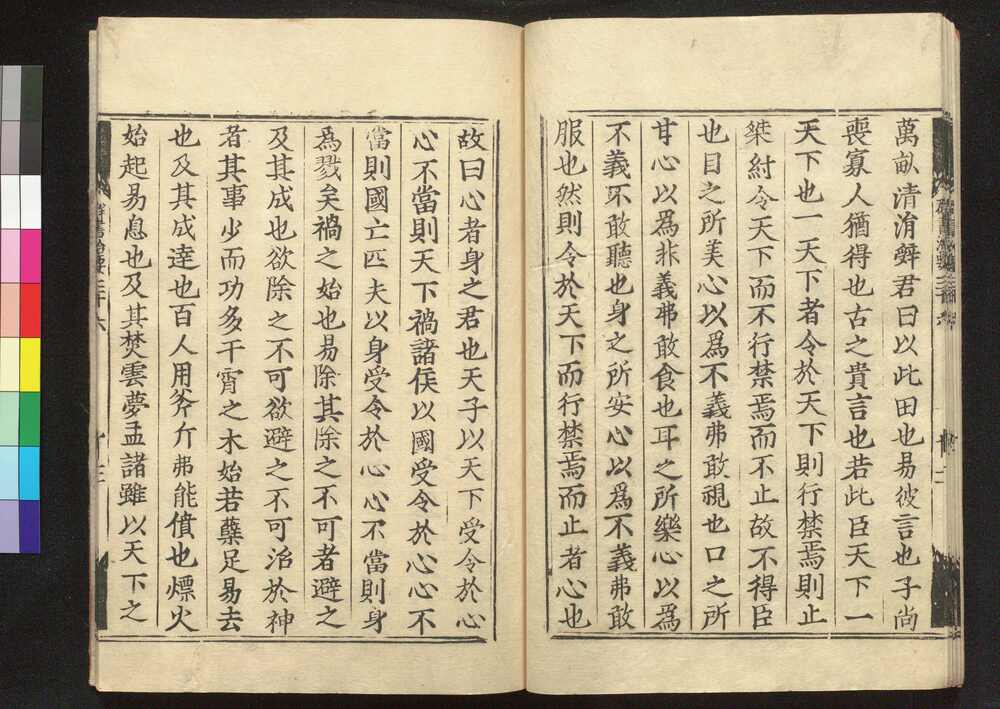 萬畝清淯辤君曰以此田也易彼言也子尚
喪寡人猶得也古之貴言也若此臣天下一
天下也一天下者令於天下則行禁焉則止
桀紂令天下而不行禁焉而不止故不得臣
也目之所美心以爲不義弗敢視也口之所
甘心以爲非義弗敢食也耳之所樂心以爲
不義不敢聽也身之所安心以爲不義弗敢
服也然則令於天下而行禁焉而止者心也
故曰心者身之君也天子以天下受令於心
心不當則天下禍諸侯以國受令於心心不
當則國亡匹夫以身受令於心心不當則身
為戮矣禍之始也易除其除之不可者避之
及其成也欲除之不可欲避之不可治於神
者其事少而功多干霄之木始若蘗足易去
也及其成達也百人用斧斤弗能僨也熛火
始起易息也及其焚雲夢孟諸雖以天下之
羣書治要三十六